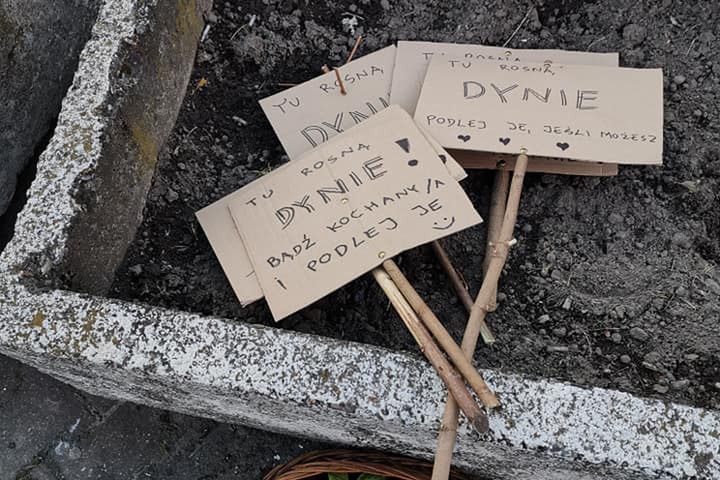 TU ROSNĄ
DYNI
TU ROSNĄ
TU ROSNĄ,
DYNIE
PODLEJ JE, JEŚLI MOŻESZ
TU ROSNĄ
DYNIE !
BĄDŹ KOCHANY/A
I PODLEJ JE